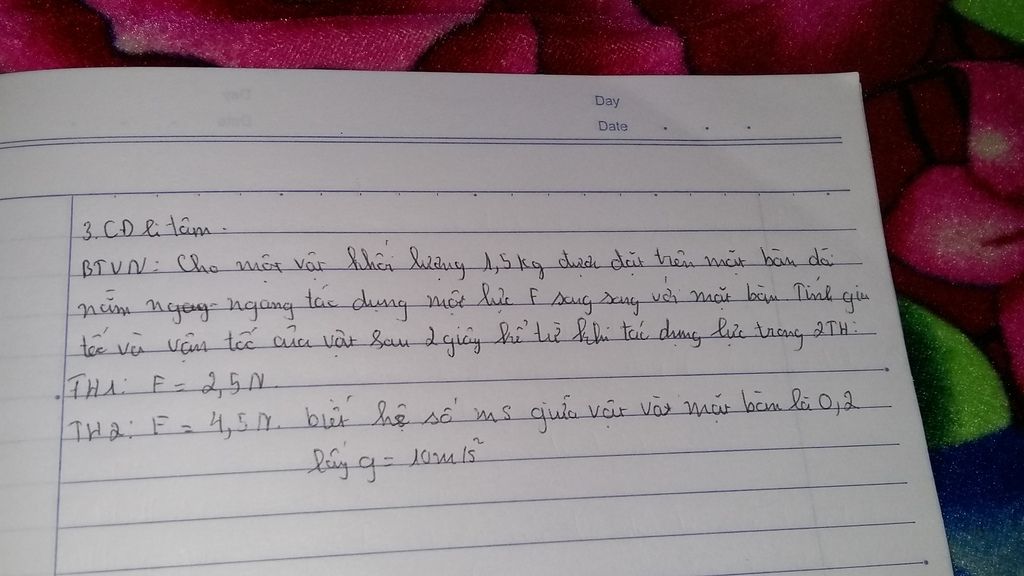 Day
Date
3. CĐ li tâm.
BTVN: Cho một vật khối lượng 1,5kg được đặt trên mặt bàn dài
nằm ngang ngang tác dụng một lực F song song với mặt bàn. Tính gia
tốc và vận tốc của vật sau 2 giây kể từ khi tác dụng lực trong 2TH:
TH1: F = 2,5N.
TH2: F = 4,5N. biết hệ số ms giữa vật và mặt bàn là 0,2
lấy g = 10m/s²